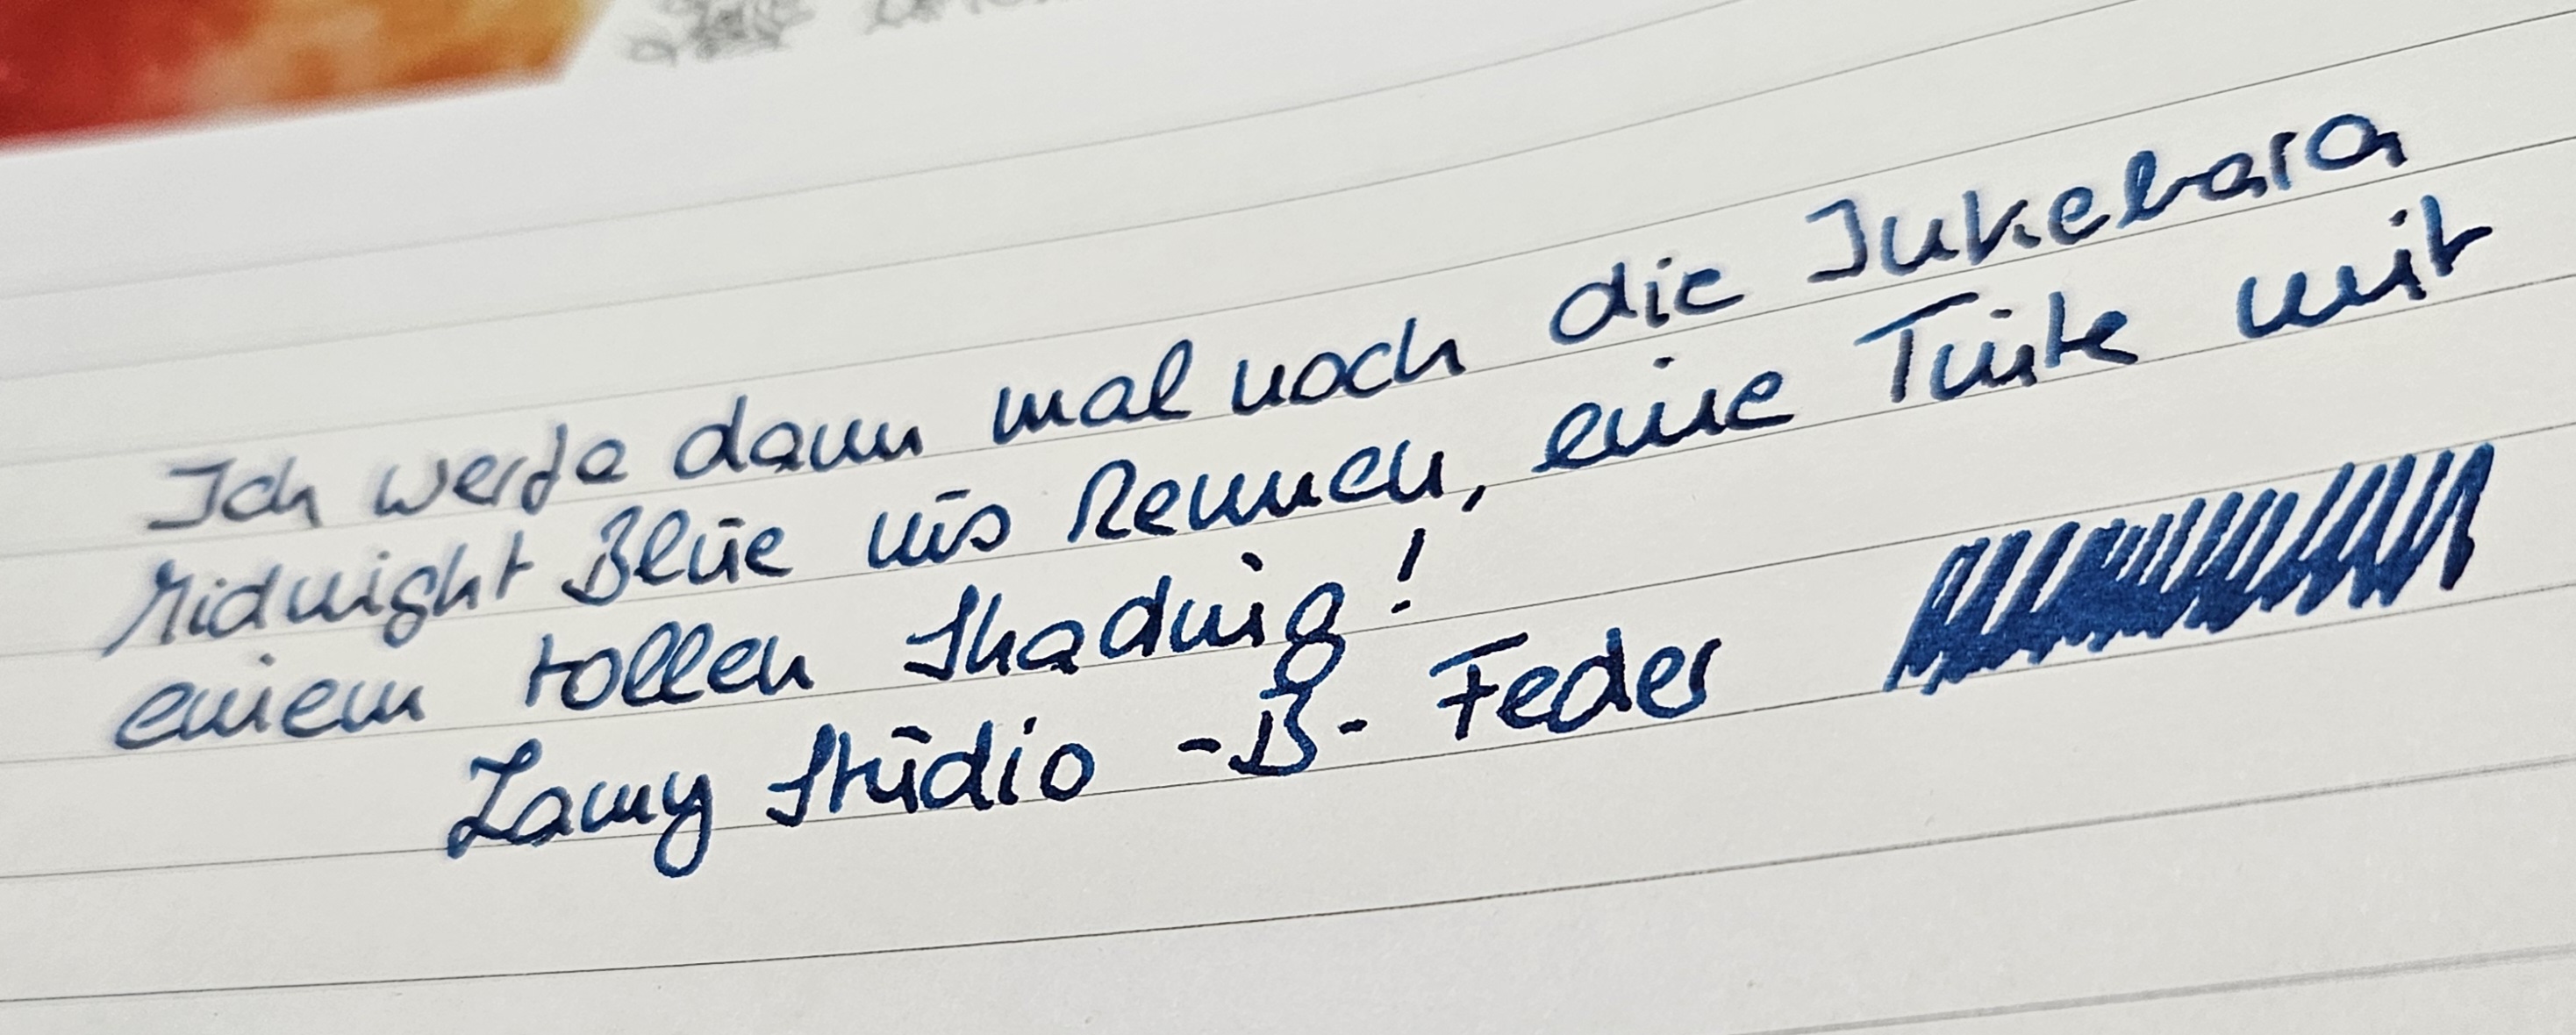 Ich werfe dann mal noch die Inkebara
Midnight Blue ins Rennen, eine Tinte mit
einem tollen Shading!
Lamy Studio -B- Feder